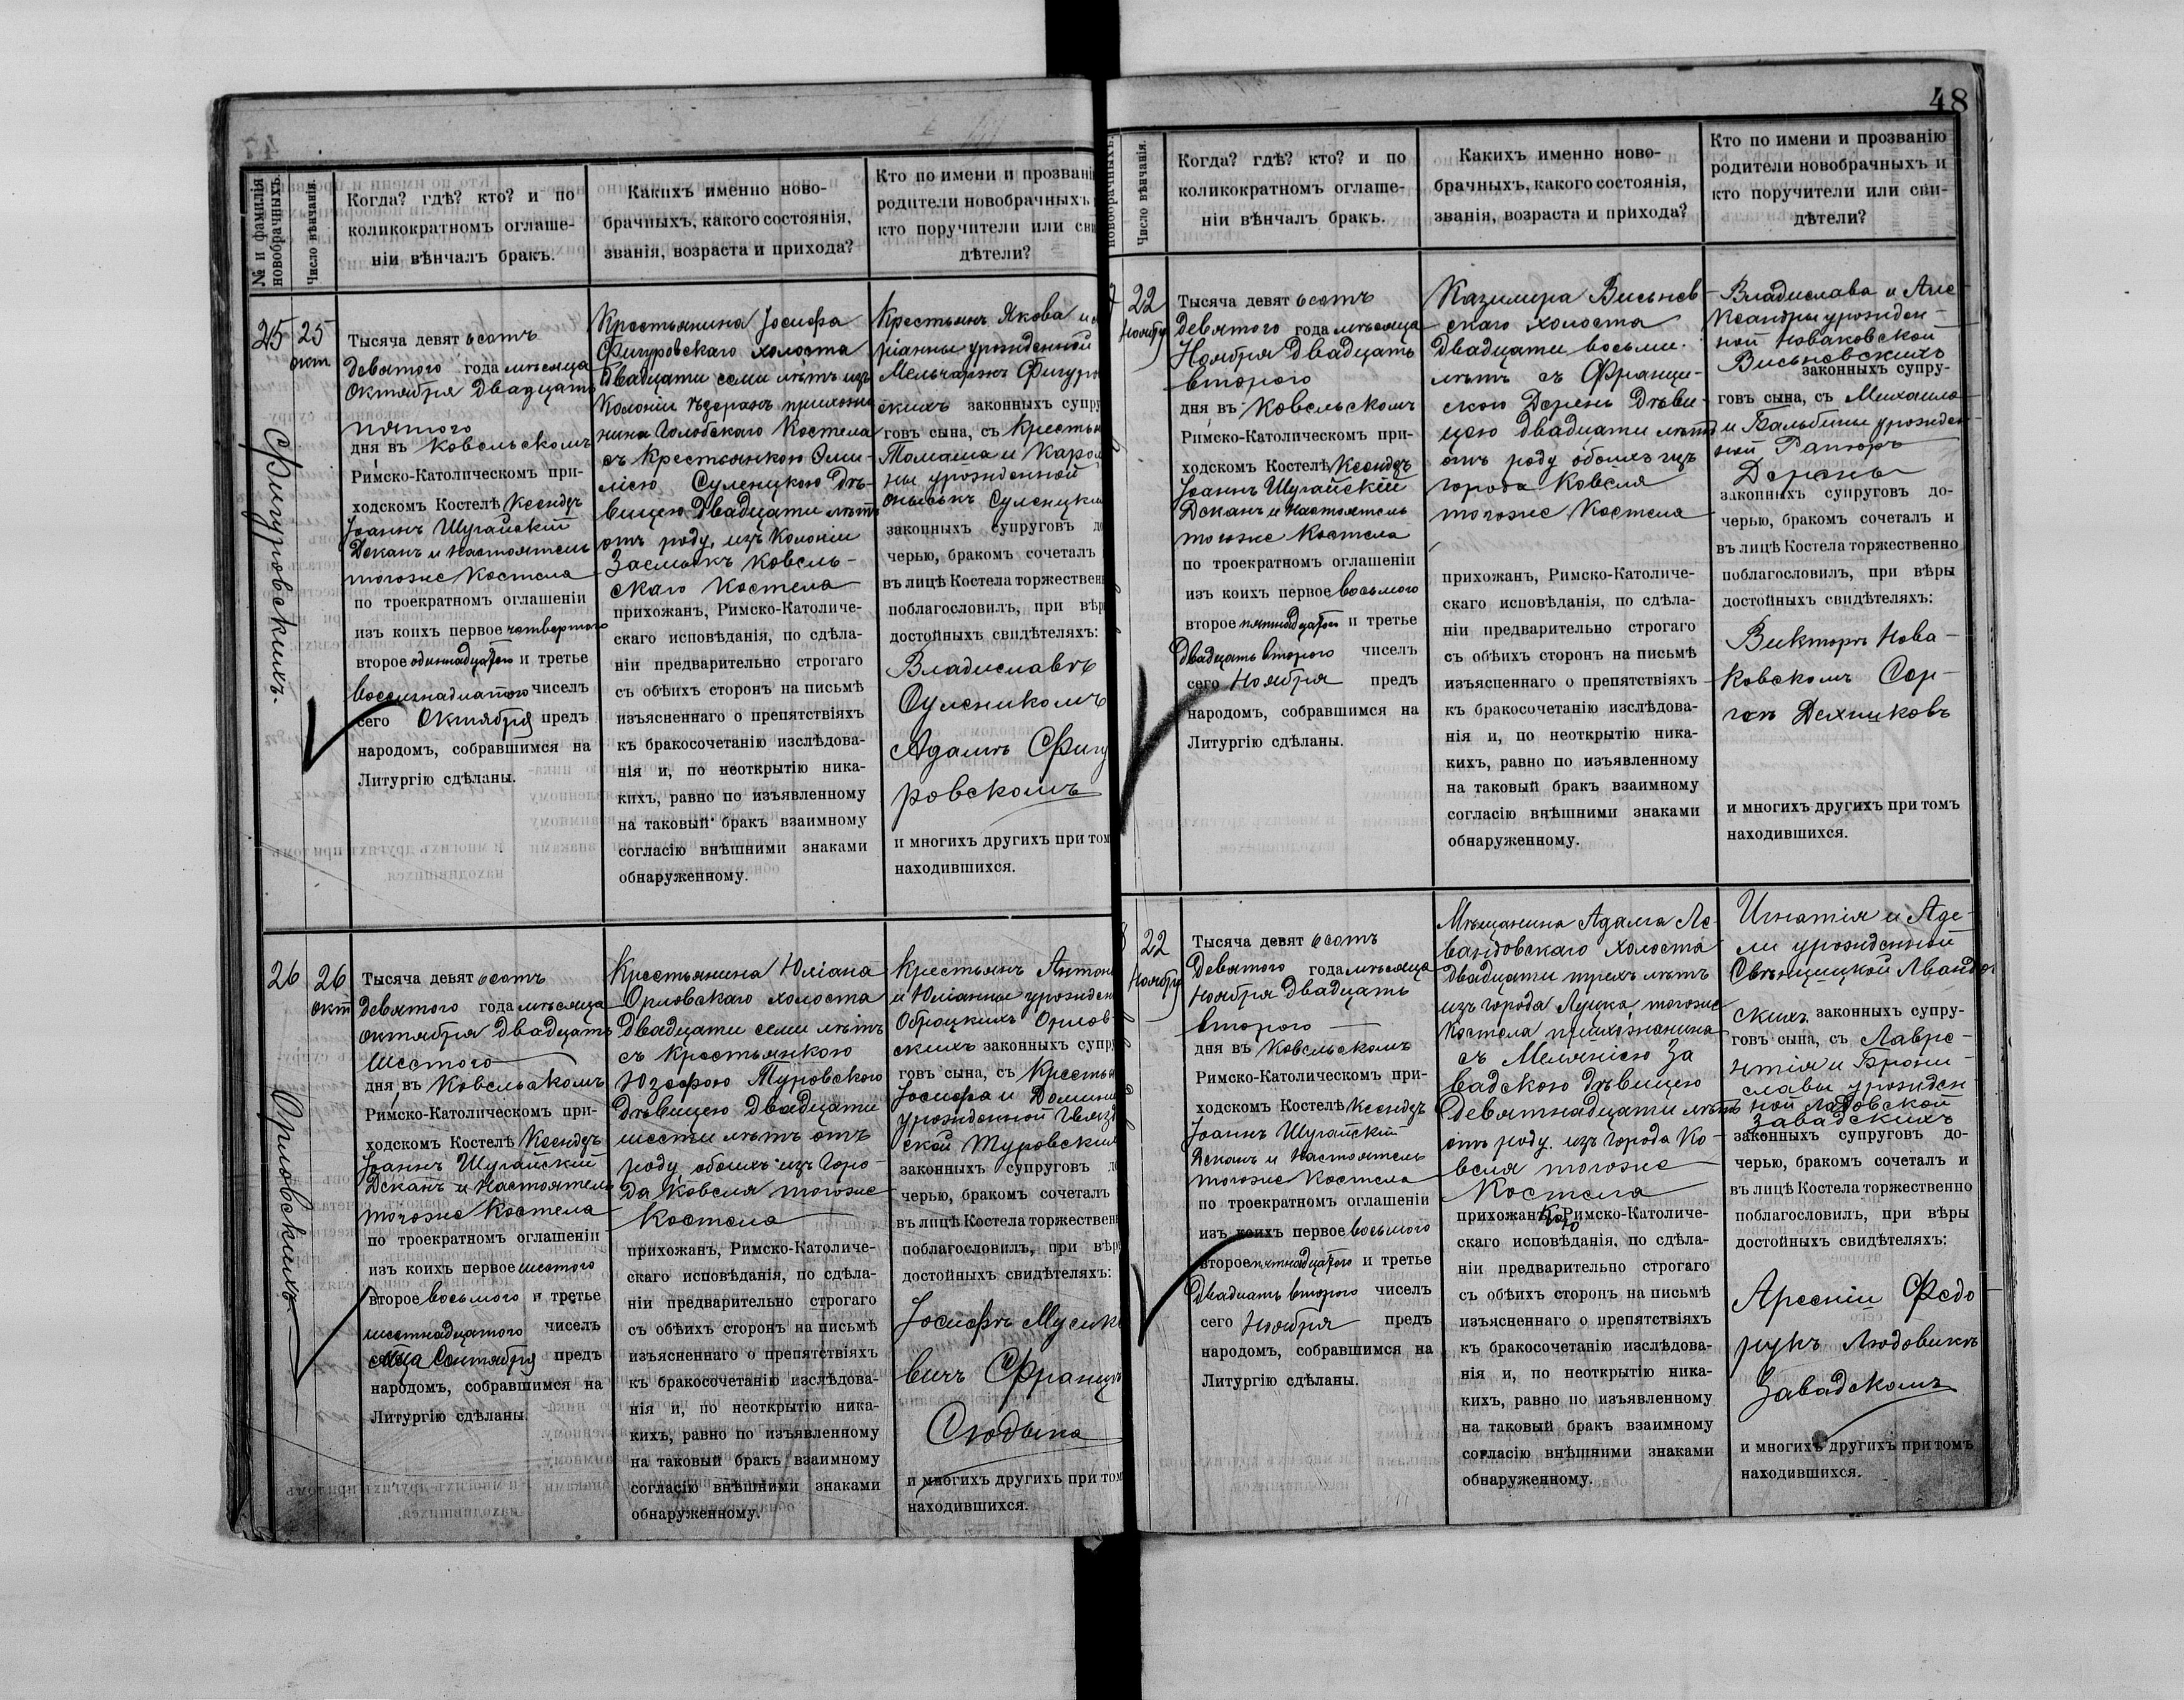 48
№ и фамилія
новобрачныхъ.
Число вѣнчанія.
Когда? гдѣ? кто? и по
коликократномъ оглаше-
ніи вѣнчалъ бракъ.
Какихъ именно ново-
брачныхъ, какого состоянія,
званія, возраста и прихода?
Кто по имени и прозванію
родители новобрачныхъ
кто поручители или сви
дѣтели?
25
Фигуровскихъ.
25
окт.
Тысяча девятьсотъ
девятого года мѣсяца
Октября двадцать
пятого
дня въ Ковельскомъ
Римско-Католическомъ при-
ходскомъ Костелѣ Ксендзъ
Іоаннъ Шугайскій
Деканъ и Настоятель
тогоже Костела
по троекратномъ оглашеніи
изъ коихъ первое четвертого
второе одинадцатого и третье
восемнадцатого числъ
сего Октября предъ
народомъ, собравшимся на
Литургію сдѣланы.
Крестьянина Іосифа
Фигуровскаго холоста
двадцати семи лѣтъ изъ
Колоніи
Голобскаго Костела
съ крестьянкою Эми-
ліею Суленцкою дѣ-
вицею двадцати лѣтъ
отъ роду, изъ Колоніи
Засмыкъ Ковель-
скаго Костела
прихожанъ, Римско-Католиче-
скаго исповѣданія, по сдѣла-
ніи предварительно строгаго
съ обѣихъ сторонъ на письмѣ
изъясненнаго о препятствіяхъ
къ бракосочетанію изслѣдова-
нія и, по неоткрытію ника-
кихъ, равно по изъявленному
на таковый бракъ взаимному
согласію внѣшними знаками
обнаруженному.
Крестьянъ Якова и
ріанны урожденной
Мельчарекъ Фигуро
скихъ законныхъ супру
говъ сына, съ Крестьян
Томаша и Карол
ны урожденной
Суленцки
законныхъ супруговъ до
черью, бракомъ сочеталъ
въ лицѣ Костела торжествен
поблагословилъ, при вѣр
достойныхъ свидѣтеляхъ:
Владиславъ
Суленикомъ
Адамъ Фигу
ровскомъ
и многихъ другихъ при том
находившихся.
26
Орловскихъ
26
окт
Тысяча девятьсотъ
девятого года мѣсяца
октября двадцать
шестого
дня въ Ковельскомъ
Римско-Католическомъ при-
ходскомъ Костелѣ Ксендзъ
Іоаннъ Шугайскій
Деканъ и Настоятель
тогоже Костела
по троекратномъ оглашеніи
изъ коихъ первое шестого
второе восьмого и третье
шестнадцатого числъ
предъ
народомъ, собравшимся на
Литургію сдѣланы.
Крестьянина Юліана
Орловскаго холоста
двадцати семи лѣтъ
съ крестьянкою
Юзефою Туровскою
дѣвицею двадцати
шести лѣтъ отъ
роду, обоихъ изъ горо-
да Ковеля тогоже
Костела
прихожанъ, Римско-Католиче-
скаго исповѣданія, по сдѣла-
ніи предварительно строгаго
съ обѣихъ сторонъ на письмѣ
изъясненнаго о препятствіяхъ
къ бракосочетанію изслѣдова-
нія и, по неоткрытію ника-
кихъ, равно по изъявленному
на таковый бракъ взаимному
согласію внѣшними знаками
обнаруженному.
Крестьянъ Антон
и Юліанны урожден
Орлов
скихъ законныхъ супру
говъ сына, съ Крестьян
Іосифа и Домини
урожденной Гвязд
ской Туровских
законныхъ супруговъ до
черью, бракомъ сочеталъ
въ лицѣ Костела торжествен
поблагословилъ, при вѣр
достойныхъ свидѣтеляхъ:
Іосифъ
вичъ Францъ
и многихъ другихъ при том
находившихся.
новобрачныхъ.
Число вѣнчанія.
Когда? гдѣ? кто? и по
коликократномъ оглаше-
ніи вѣнчалъ бракъ.
Какихъ именно ново-
брачныхъ, какого состоянія,
званія, возраста и прихода?
Кто по имени и прозванію
родители новобрачныхъ и
кто поручители или сви-
дѣтели?
22
Ноября
Тысяча девятьсотъ
девятого года мѣсяца
Ноября двадцать
второго
дня въ Ковельскомъ
Римско-Католическомъ при-
ходскомъ Костелѣ Ксендзъ
Іоаннъ Шугайскій
Деканъ и Настоятель
тогоже Костела
по троекратномъ оглашеніи
изъ коихъ первое восьмого
второе пятнадцатого и третье
двадцать второго числъ
сего Ноября предъ
народомъ, собравшимся на
Литургію сдѣланы.
Казимира Висьнев-
скаго холоста
двадцати восьми
лѣтъ съ Францис-
кою Дерень дѣви-
цею двадцати лѣтъ
отъ роду обоихъ изъ
города Ковеля
тогоже Костела
прихожанъ, Римско-Католиче-
скаго исповѣданія, по сдѣла-
ніи предварительно строгаго
съ обѣихъ сторонъ на письмѣ
изъясненнаго о препятствіяхъ
къ бракосочетанію изслѣдова-
нія и, по неоткрытію ника-
кихъ, равно по изъявленному
на таковый бракъ взаимному
согласію внѣшними знаками
обнаруженному.
Владислава и Але-
ксандры урожден-
ной Новаковской
Висьневскихъ
законныхъ супру-
говъ сына, съ Михаила
и Бальбины урожден
ной
Дерень
законныхъ супруговъ до-
черью, бракомъ сочеталъ и
въ лицѣ Костела торжественно
поблагословилъ, при вѣры
достойныхъ свидѣтеляхъ:
Викторъ Нова-
ковскомъ Сер-
гей
и многихъ другихъ при томъ
находившихся.
22
Ноября
Тысяча девятьсотъ
девятого года мѣсяца
Ноября двадцать
второго
дня въ Ковельскомъ
Римско-Католическомъ при-
ходскомъ Костелѣ Ксендзъ
Іоаннъ Шугайскій
Деканъ и Настоятель
тогоже Костела
по троекратномъ оглашеніи
изъ коихъ первое восьмого
второе пятнадцатого и третье
двадцать второго числъ
сего Ноября предъ
народомъ, собравшимся на
Литургію сдѣланы.
Мѣщанина Адама Ле-
вандовскаго холоста
двадцати трехъ лѣтъ
изъ города Луцка, тогоже
Костела прихожанина
съ Меляніею За
вадскою дѣвицею
девятнадцати лѣтъ
отъ роду изъ города Ко-
веля тогоже
Костела
прихожанкою Римско-Католиче-
скаго исповѣданія, по сдѣла-
ніи предварительно строгаго
съ обѣихъ сторонъ на письмѣ
изъясненнаго о препятствіяхъ
къ бракосочетанію изслѣдова-
нія и, по неоткрытію ника-
кихъ, равно по изъявленному
на таковый бракъ взаимному
согласію внѣшними знаками
обнаруженному.
Игнатія и Аде-
ли урожденной
скихъ законныхъ супру-
говъ сына, съ Лавре-
нтія и Брони-
славы урожден
ной
Завадскихъ
законныхъ супруговъ до-
черью, бракомъ сочеталъ и
въ лицѣ Костела торжественно
поблагословилъ, при вѣры
достойныхъ свидѣтеляхъ:
Арсеній Федо-
рукъ Людовикъ
Завадскомъ
и многихъ другихъ при томъ
находившихся.